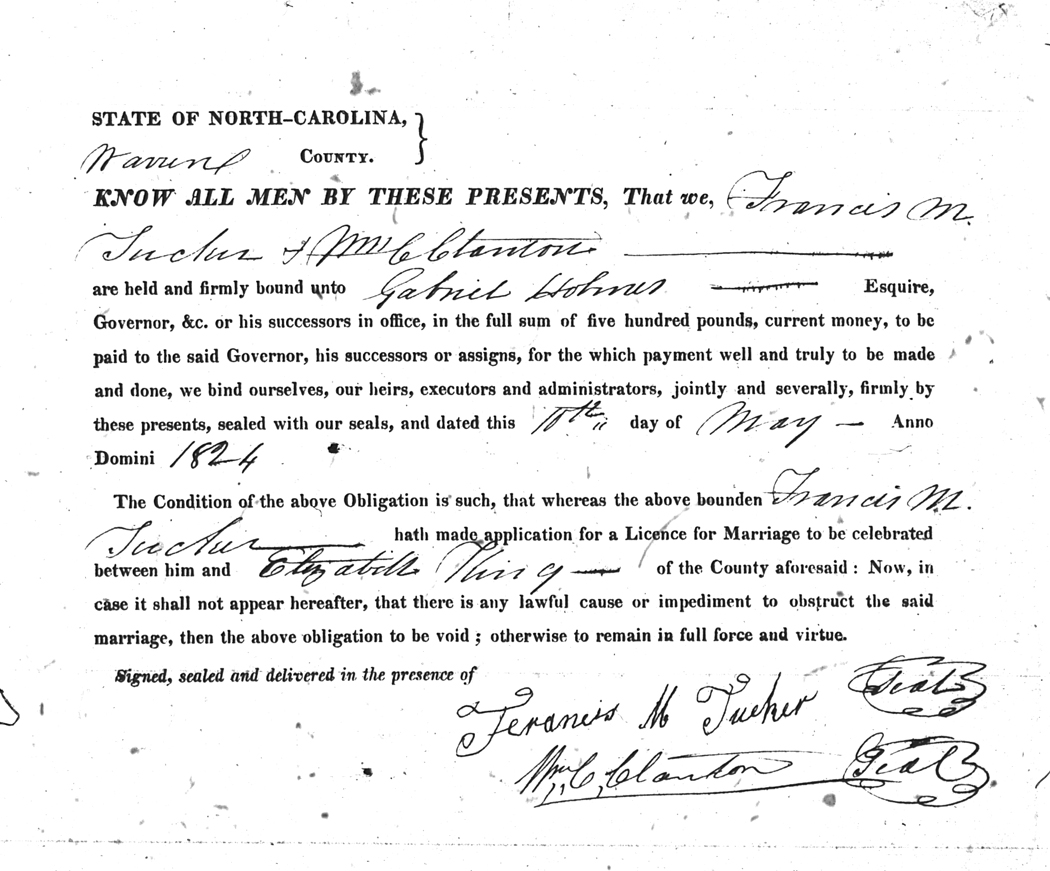 STATE OF NORTH-CAROLINA, }
Warren COUNTY.
KNOW ALL MEN BY THESE PRESENTS, That we, Francis M.
Tucker & Wm C Clanton
are held and firmly bound unto Gabriel Holmes Esquire,
Governor, &c. or his successors in office, in the full sum of five hundred pounds, current money, to be
paid to the said Governor, his successors or assigns, for the which payment well and truly to be made
and done, we bind ourselves, our heirs, executors and administrators, jointly and severally, firmly by
these presents, sealed with our seals, and dated this 10th day of May Anno
Domini 1824
The Condition of the above Obligation is such, that whereas the above bounden Francis M.
Tucker hath made application for a Licence for Marriage to be celebrated
between him and Elizabeth King of the County aforesaid: Now, in
case it shall not appear hereafter, that there is any lawful cause or impediment to obstruct the said
marriage, then the above obligation to be void; otherwise to remain in full force and virtue.
Signed, sealed and delivered in the presence of
Francis M Tucker Seal
Wm C, Clanton Seal